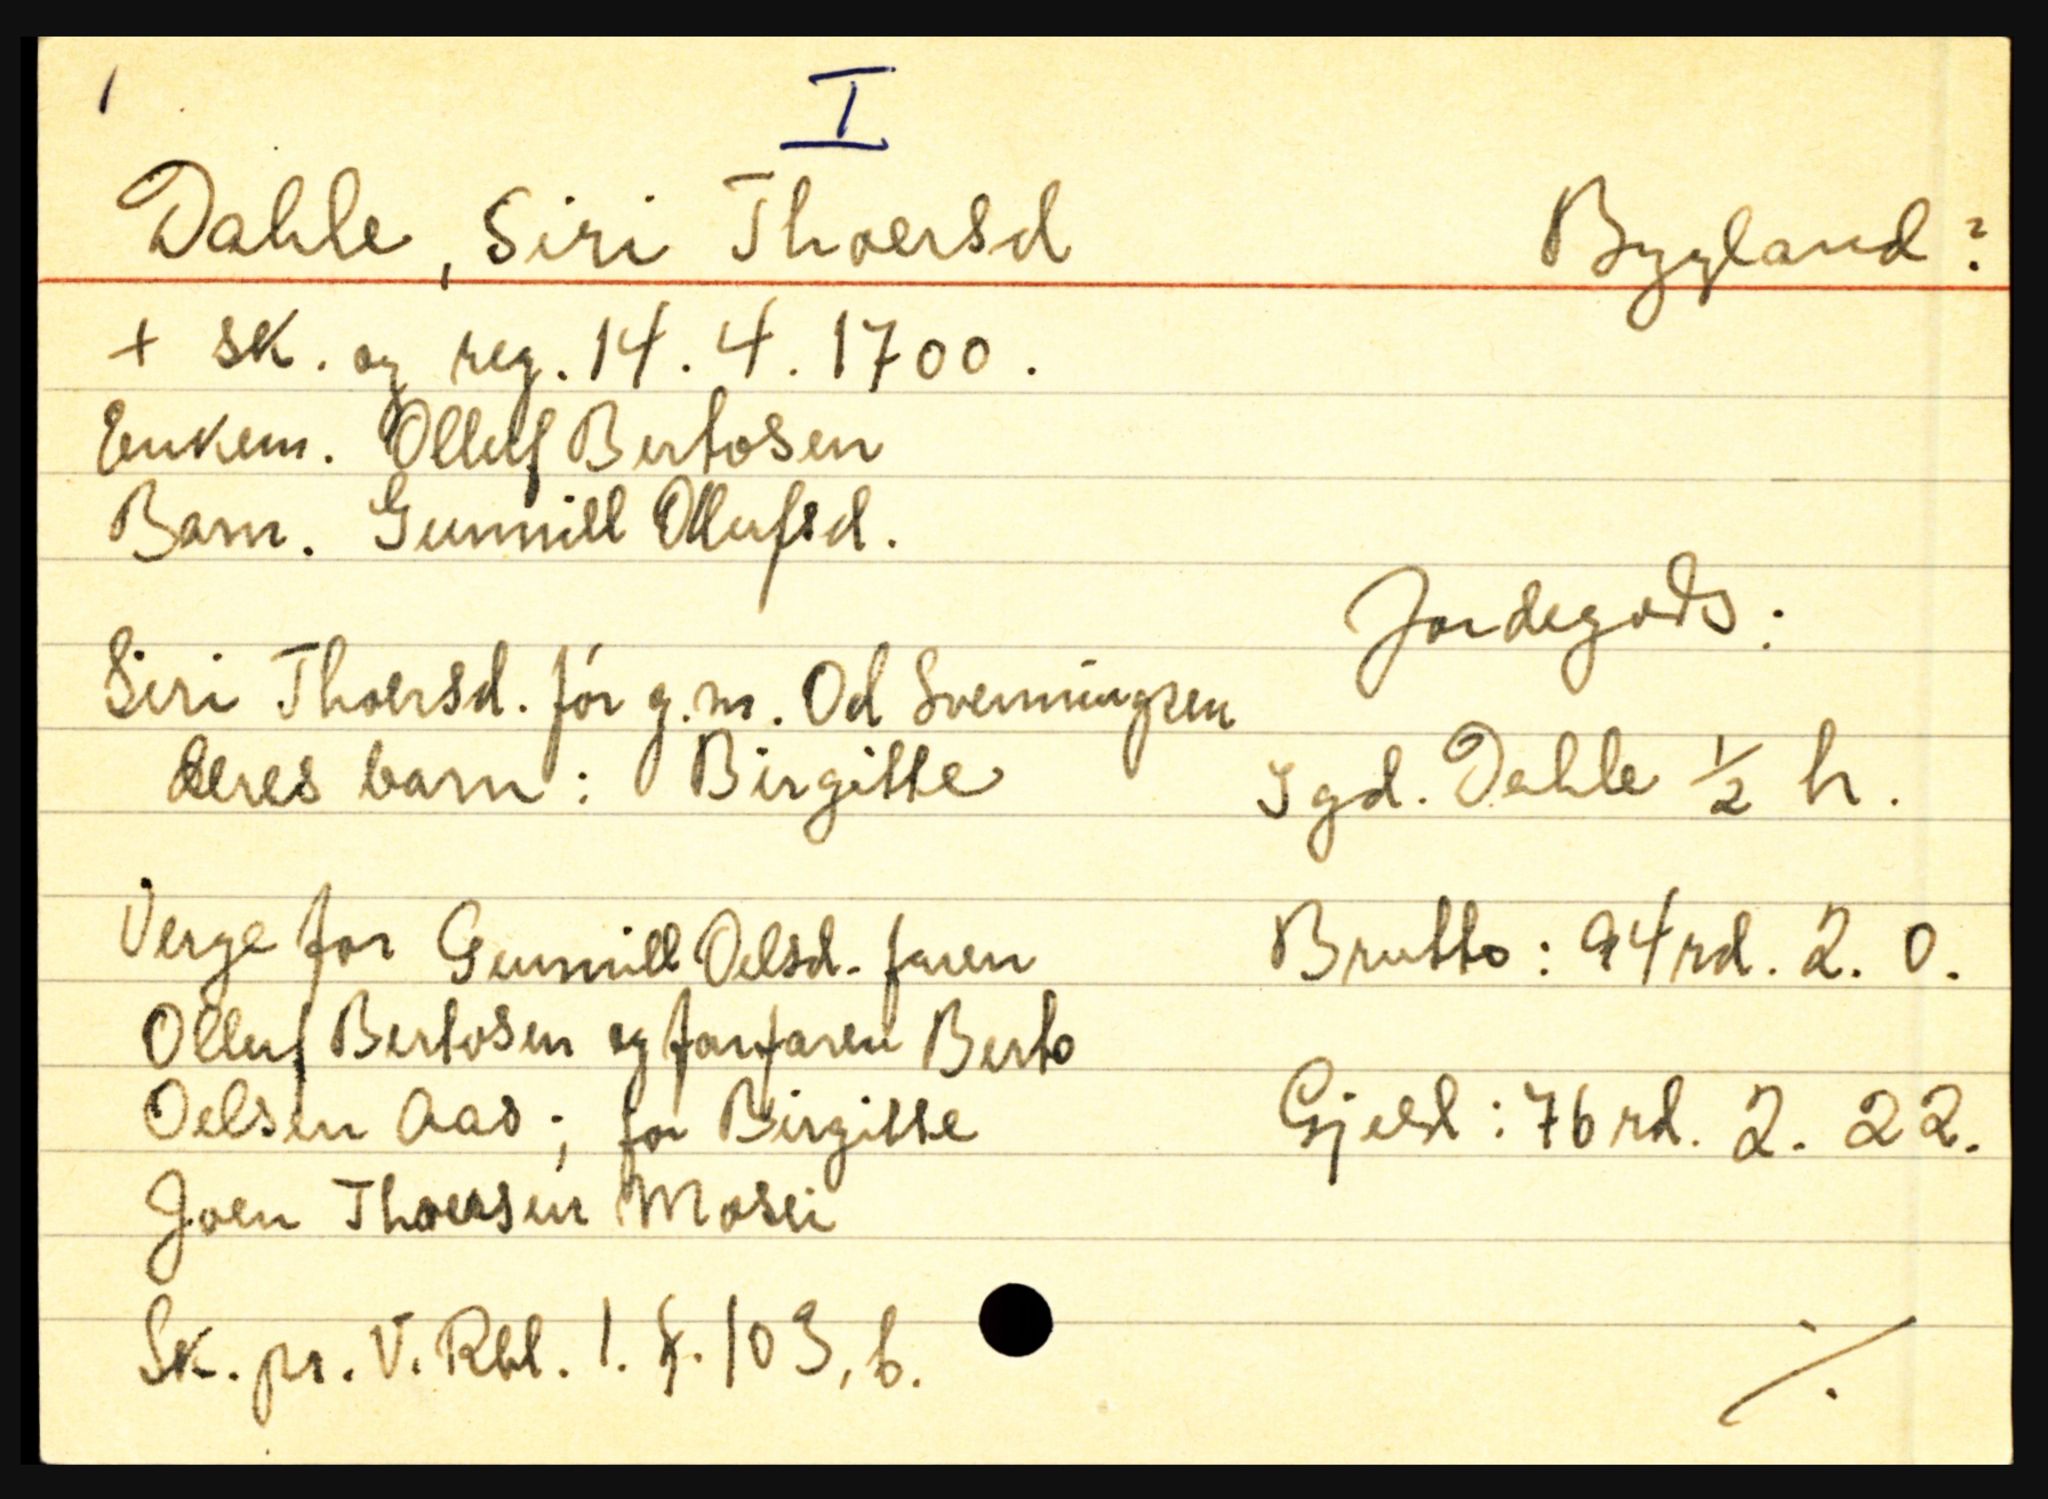 I
Dahle, Siri Thoersd
Bygland?
+ sk. og reg. 14. 4. 1700.
Enkem. Olluf Bertosen
Barn. Gunnill Ollufsd.
Siri Thoersd. før g.m. Od Svenningsen
deres barn: Birgitte
Verge for Gunnill Oelsd. faren
Olluf Bertosen og farfaren Berto
Oelsen Aas; for Birgitte
Joen Thoersen Mosei
Sk. pr. V. Rbl. 1. f. 103, b.
Jordegods:
I gd. Dahle ½ h.
Brutto: 94 rd. 2. 0.
Gjeld: 76 rd. 2. 22.
./.